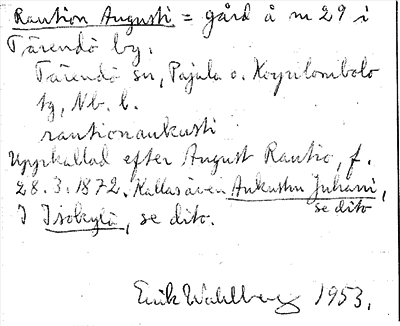 Raution Augusti = gård å m 29 i
Tärendö by.
Tärendö sn, Pajala o. Korpilombolo
tg, Nb. l.
rautionaukusti
Uppkallad efter August Rautio, f.
28.3.1872. Kallas även Aukustin Juhani,
se dito
I Isokylä, se dito.
Erik Wahlberg 1953.